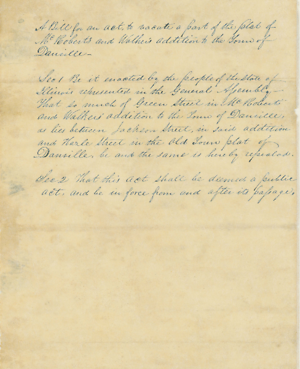 A Bill for an act, to vacate a part of the plat of
Mc Roberts and Walkers addition to the Town of
Danville.
Sec 1 Be it enacted by the people of the state of
Illinois represented in the General Assembly
That so much of Green Street in Mc Roberts
and Walkers addition to the Town of Danville,
as lies between Jackson Street, in said addition
and Street in the Old Town plat of
Danville, be and the same is hereby repealed.
Sec 2 That this act shall be deemed a public
act, and be in force from and after its passage.